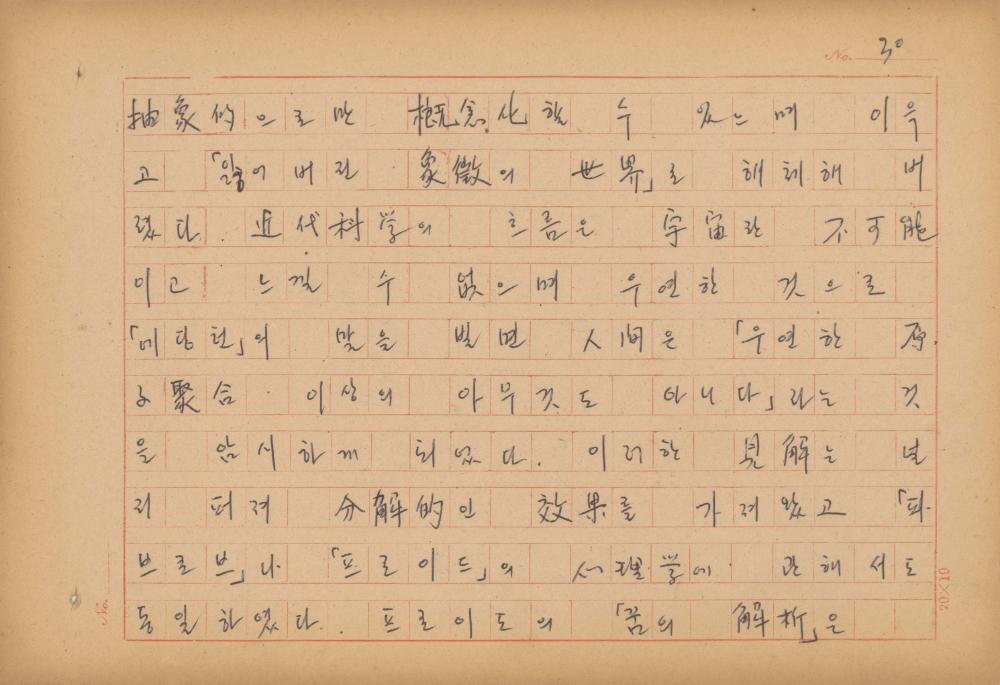 No. 30
抽象的으로만 概念化할 수 있느며 이윽
고 「잃어버린 象徵의 世界」로 해체해 버
렸다. 近代科学의 흐름은 宇宙란 不可能
이고 느낄 수 없으며 우연한 것으로
의 말을 빌면 人间은 「우연한 原
子聚合 이상의 아무것도 아니다」라는 것
을 암시하게 되었다. 이러한 見解는 널
리 퍼져 分解的인 效果를 가져왔고 「파
브로브」나 「프로이드」의 心理学에 관해서도
동일하였다. 프로이도의 「꿈의 解析」은
No.
20×10